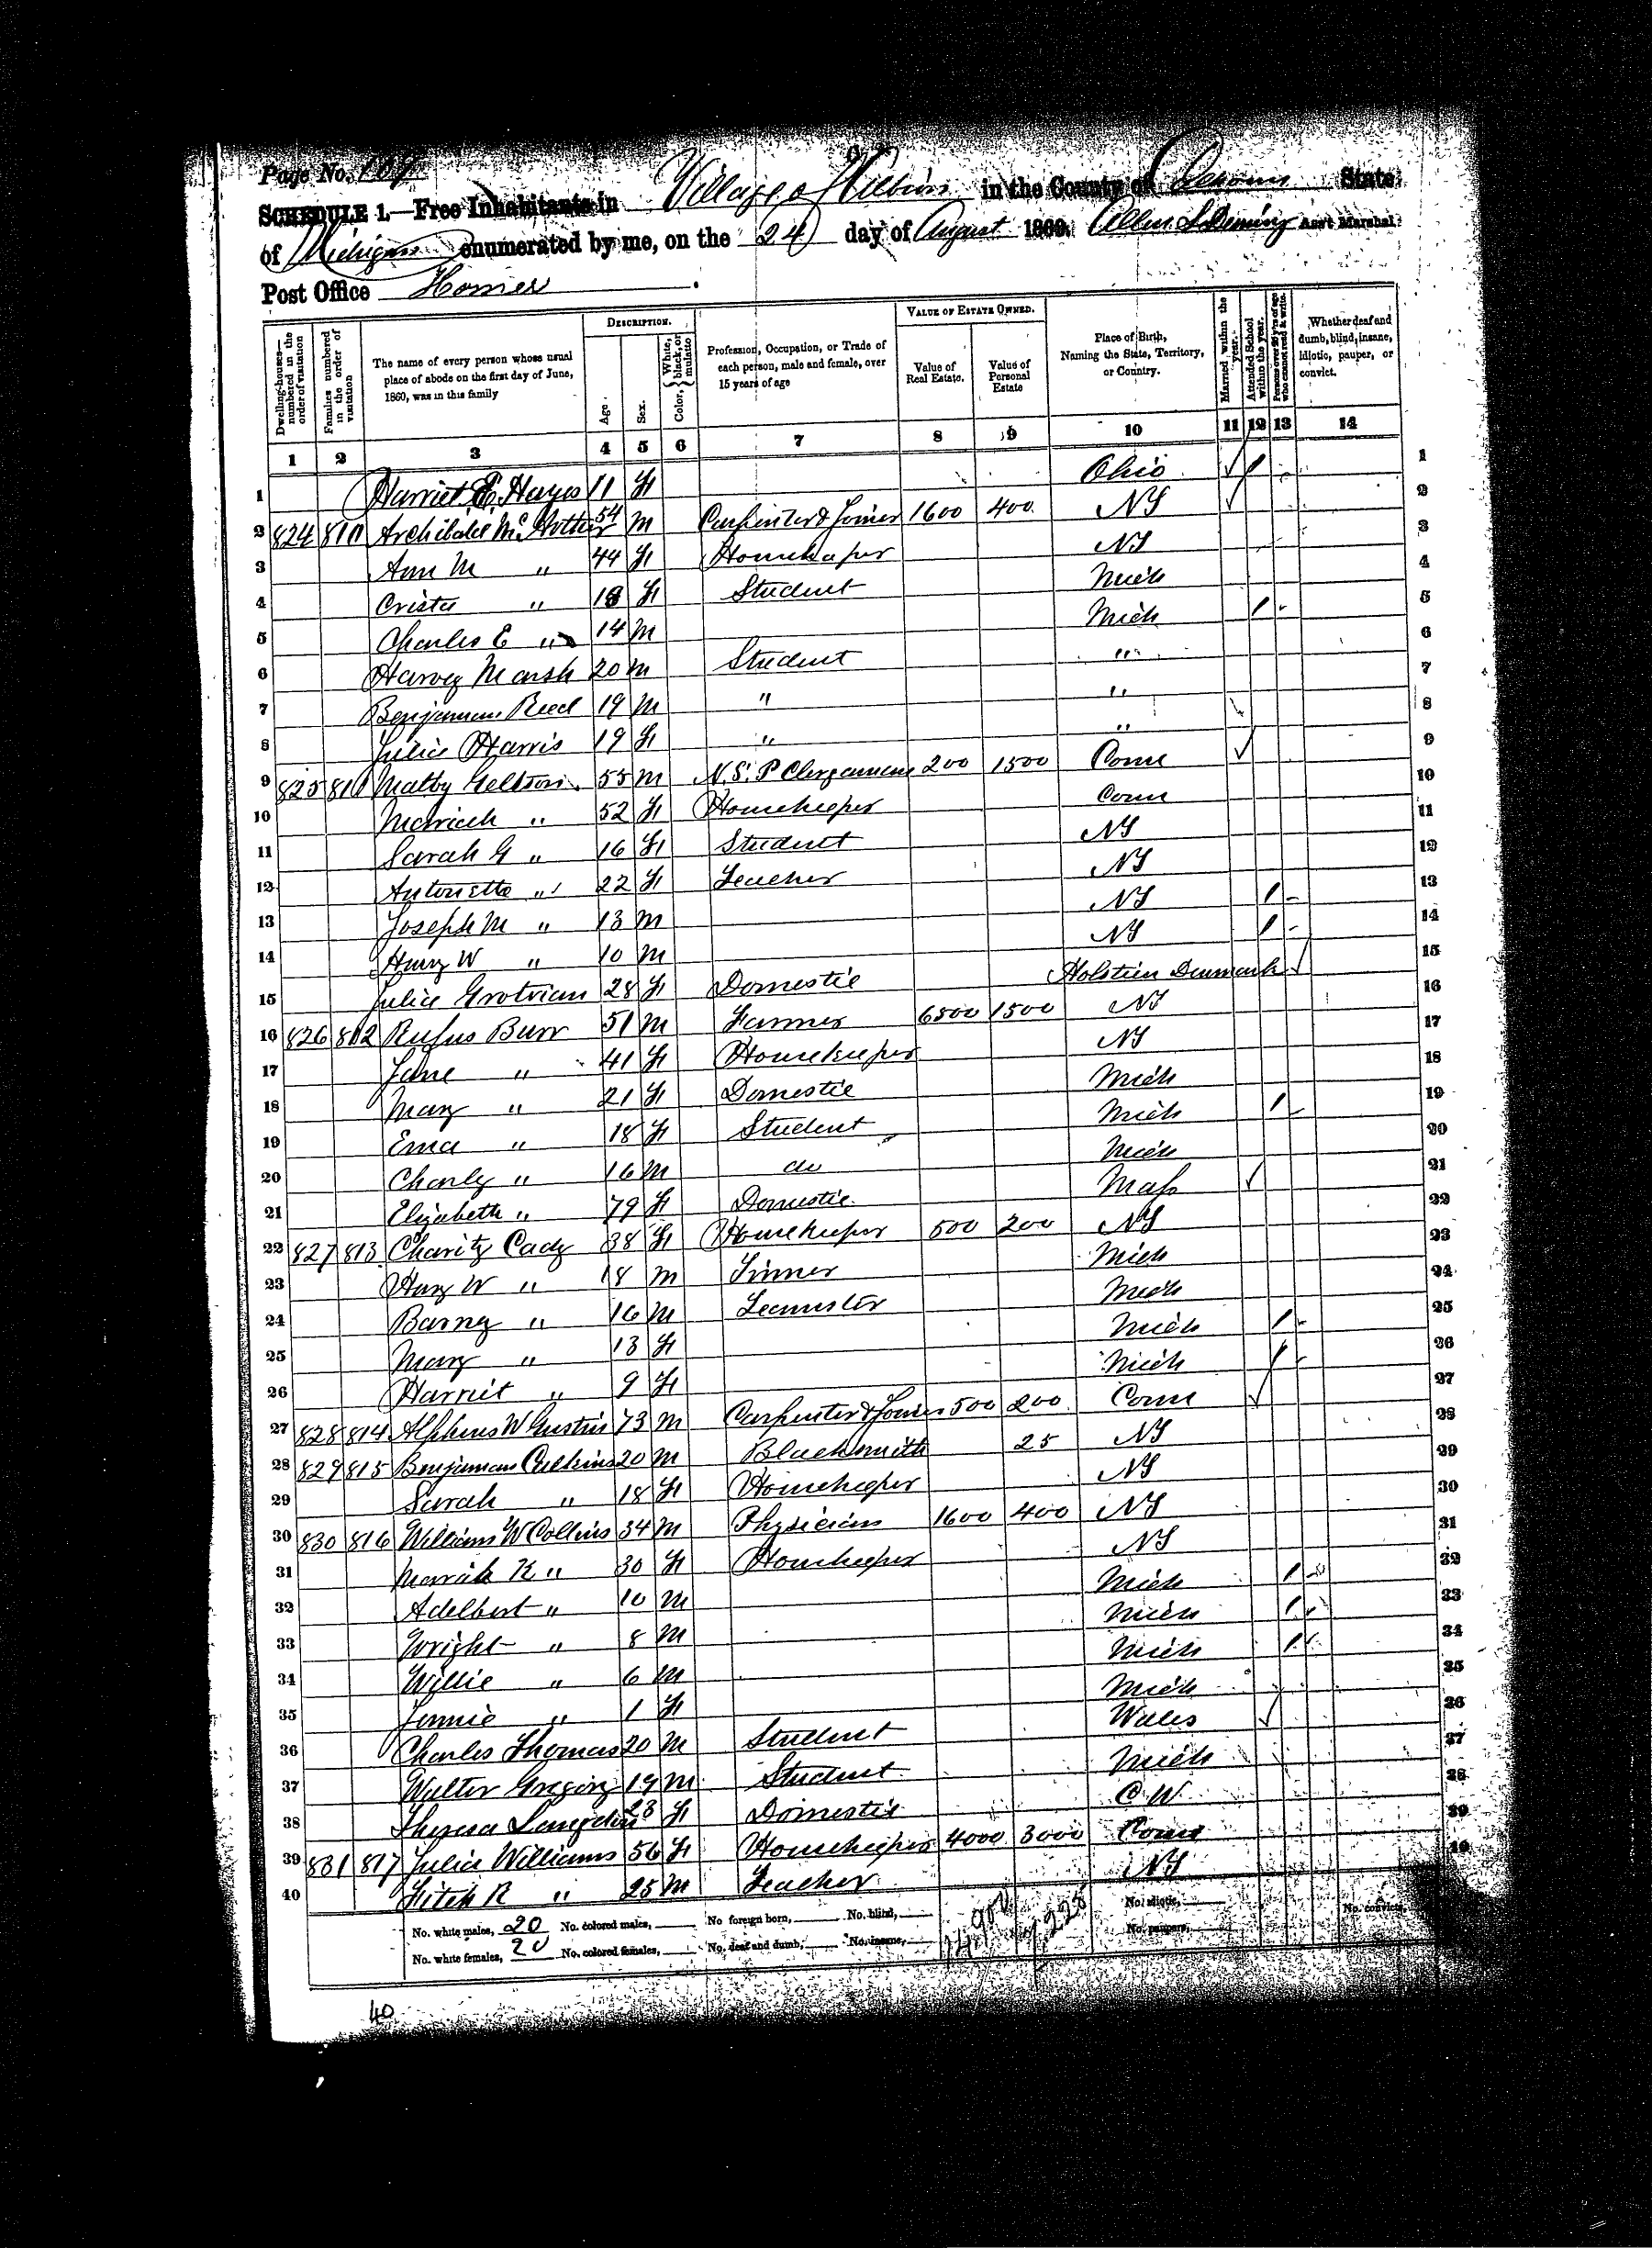 Page No. 104
SCHEDULE 1.—Free Inhabitants in Village of Albion in the County of State
of Michigan enumerated by me, on the 24 day of August 1860. Allen S Deming Ass't Marshal.
Post Office Homer
Dwelling-houses—numbered in the order of visitation
Families numbered in the order of visitation
The name of every person whose usual place of abode on the first day of June, 1860, was in this family
DESCRIPTION.
Age.
Sex.
Color, White, black, or mulatto
Profession, Occupation, or Trade of each person, male and female, over 15 years of age
VALUE OF ESTATE OWNED.
Value of Real Estate.
Value of Personal Estate
Place of Birth, Naming the State, Territory, or Country.
Married within the year.
Attended School within the year.
Persons over 20 y'rs of age who cannot read & write.
Whether deaf and dumb, blind, insane, idiotic, pauper, or convict.
1 2 3 4 5 6 7 8 9 10 11 12 13 14
1 Harriet E Hayes 11 F Ohio 1
2 824 810 Archibald Mc 54 M Carpenter & Joiner 1600 400 NY 2
3 Ann M " 44 F Housekeeper NY 3
4 " 18 F Student Mich 4
5 Charles E " 14 M Mich 5
6 Harvey Marsh 20 M Student " 6
7 Benjamin Reed 19 M " " 7
8 Julia Harris 19 F " " 8
9 825 811 Maltby Gelston 55 M N.S. P Clergaman 200 1500 Conn 9
10 Mariah " 52 F Housekeeper Conn 10
11 Sarah G " 16 F Student NY 11
12 Antoinette " 22 F Teacher NY 12
13 Joseph M " 13 M NY 13
14 Hury W " 10 M NY 14
15 Julia Grotrian 28 F Domestic Holstien Denmark 15
16 826 812 Rufus Burr 51 M Farmer 6500 1500 NY 16
17 Jane " 41 F Housekeeper NY 17
18 Mary " 21 F Domestic Mich 18
19 Ema " 18 F Student Mich 19
20 Charly " 16 M do Mich 20
21 Elizabeth " 79 F Domestic Mass 21
22 827 813 Charity Cady 38 F Housekeeper 500 200 NY 22
23 Hury W " 18 M Tinner Mich 23
24 Barny " 16 M Teamster Mich 24
25 Mary " 13 F Mich 25
26 Harriet " 9 F Mich 26
27 828 814 Alpheus W Gustin 73 M Carpenter & Joiner 500 200 Conn 27
28 829 815 Benjaman Culkins 20 M Blacksmith 25 NY 28
29 Sarah " 18 F Housekeeper NY 29
30 830 816 William W Collins 34 M Physician 1600 400 NY 30
31 Mariah K " 30 F Housekeeper NY 31
32 Adelbert " 10 M Mich 32
33 Wright " 8 M Mich 33
34 Willie " 6 M Mich 34
35 Jennie " 1 F Mich 35
36 Charles Thomas 20 M Student Wales 36
37 Walter Gregory 19 M Student Mich 37
38 Theresa Langdon 23 F Domestic C W 38
39 831 817 Julia Williams 56 F Housekeeper 4000 3000 Conn 39
40 Fitch R " 25 M Teacher NY 40
No. white males, 20 No. colored males, No foreign born, No. blind, No. idiotic, No. convicts,
No. white females, 20 No. colored females, No. deaf and dumb, No. insane, No. paupers,
40